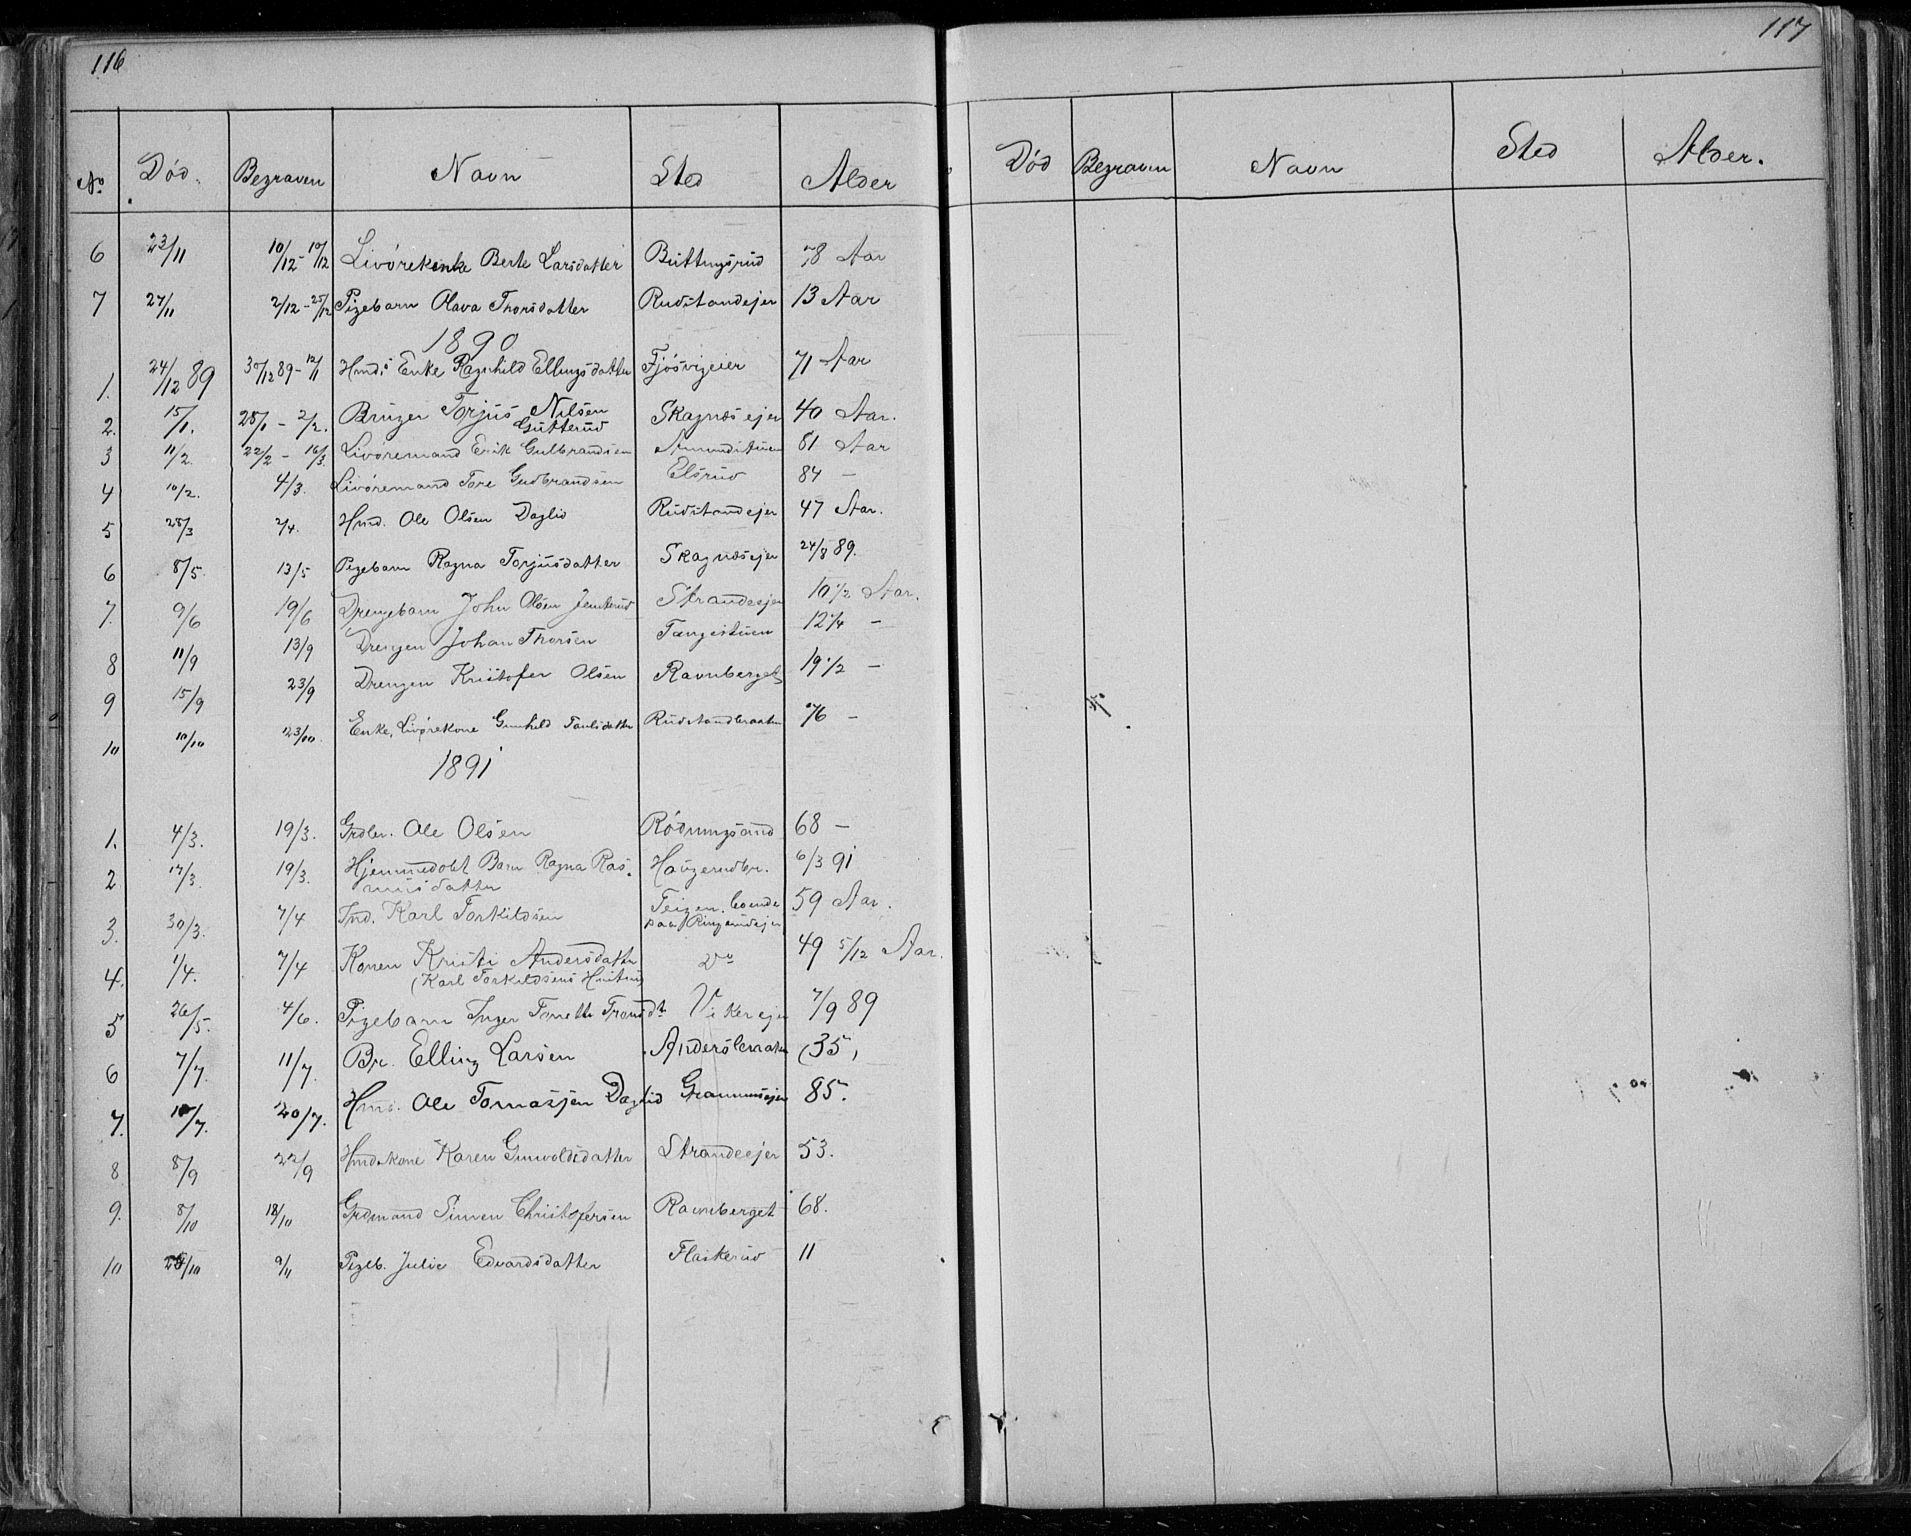 116
No Død. Begraven Navn Sted Alder
6 23/11 10/12 - 10/12 Livørekenke Berte Larsdatter Buttingsrud 78 Aar
7 27/11 2/12 - 25/12 Pigebarn Olava Thorsdatter Rudstandejer 13 Aar
1890
1. 24/12 89 30/12 89 - 12/1 Hmds Enke Ragnhild Ellingsdatter Fjøsvigeier 71 Aar
2. 15/1. 25/1 - 2/2. Bruger Torjus Nilsen Skagnæsejer 40 Aar.
Gutterud
3 11/2. 22/2 - 16/3. Livøremand Erik Gulbrandsen Amundstuen 81 Aar
4 10/2. 4/3. Livøremand Tore Gudbrandsen Elsrud 84 -
5 25/3 2/4. Hmd. Ole Olsen Daglid Rudstandejer 47 Aar.
6 8/5. 13/5 Pigebarn Ragna Torjusdatter Skagnæsejer 24/8 89.
7. 9/6 19/6 Drengebarn John Olsen Jemterud Strandeejer 10 1/2 Aar.
8 11/9 13/9 Drengen Johan Thorsen Tangestuen 12 1/4 -
9 15/9 23/9 Drengen Kristofer Olsen Ravnberget 19 1/2 -
10 10/10 23/10. Enke, Livørekone Gunhild Paulsdatter Rudstandbraaten 76 -
1891
1. 4/3. 19/3. Grdbr. Ole Olsen Rødningsand 68 -
2 17/3. 19/3. Hjemmedøbt Barn Ragna Ras- Haugerudbr. 6/3 91
musdatter
3. 30/3. 7/4 Ind. Karl Torkildsen Teigen, boende 59 Aar.
paa Ringerudejer
4. 1/4. 7/4 Konen Kristi Andersdatter Do 49 5/12 Aar.
(Karl Torkildsens Hustru)
5 26/5. 4/6. Pigebarn Inger Tonette Transdr Vikerejer 7/9 89
6 7/7. 11/7. Br. Elling Larsen Andersbraaten (35,
7. 10/7. 20/7. Hmd. Ole Tomassjen Daglid Grannæsejer 85.
8 8/9 22/9 Hmdskone Karen Gunvoldsdatter Strandeejer 53.
9. 8/10 18/10 Grdmand Simen Christofersen Ravnberget 68.
10 24/10 9/11 Pigeb. Julie Edvardsdatter Flaskerud 11
117
Død Begraven Navn Sted Alder.